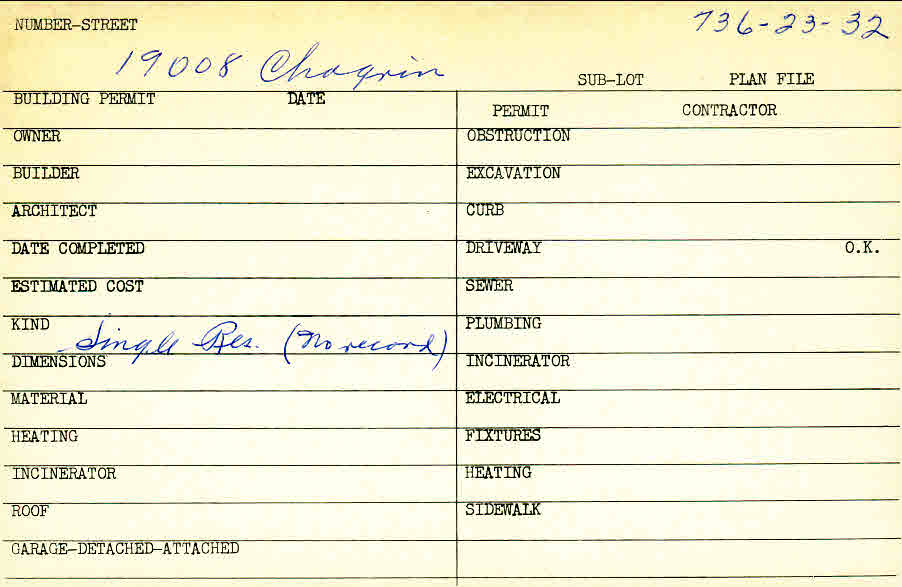 NUMBER-STREET 736-23-32
19008 Chagrin
SUB-LOT PLAN FILE
BUILDING PERMIT DATE
PERMIT CONTRACTOR
OWNER OBSTRUCTION
BUILDER EXCAVATION
ARCHITECT CURB
DATE COMPLETED DRIVEWAY O.K.
ESTIMATED COST SEWER
KIND Single Res. (No record) PLUMBING
DIMENSIONS INCINERATOR
MATERIAL ELECTRICAL
HEATING FIXTURES
INCINERATOR HEATING
ROOF SIDEWALK
GARAGE-DETACHED-ATTACHED